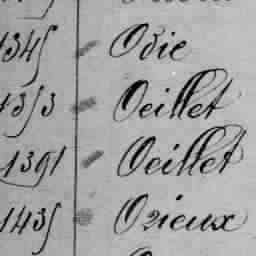 1345 Odie
1353 Oeillet
1391 Oeillet
1435 Ozieux